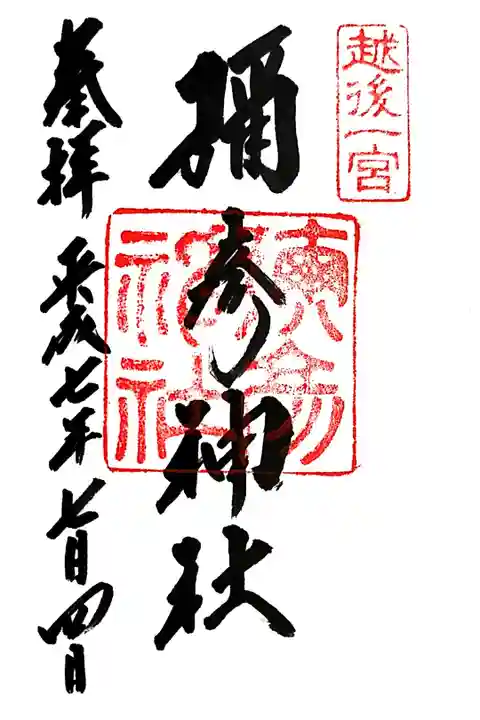 越後一宮
彌彦神社
奉拝 平成七年七月四日